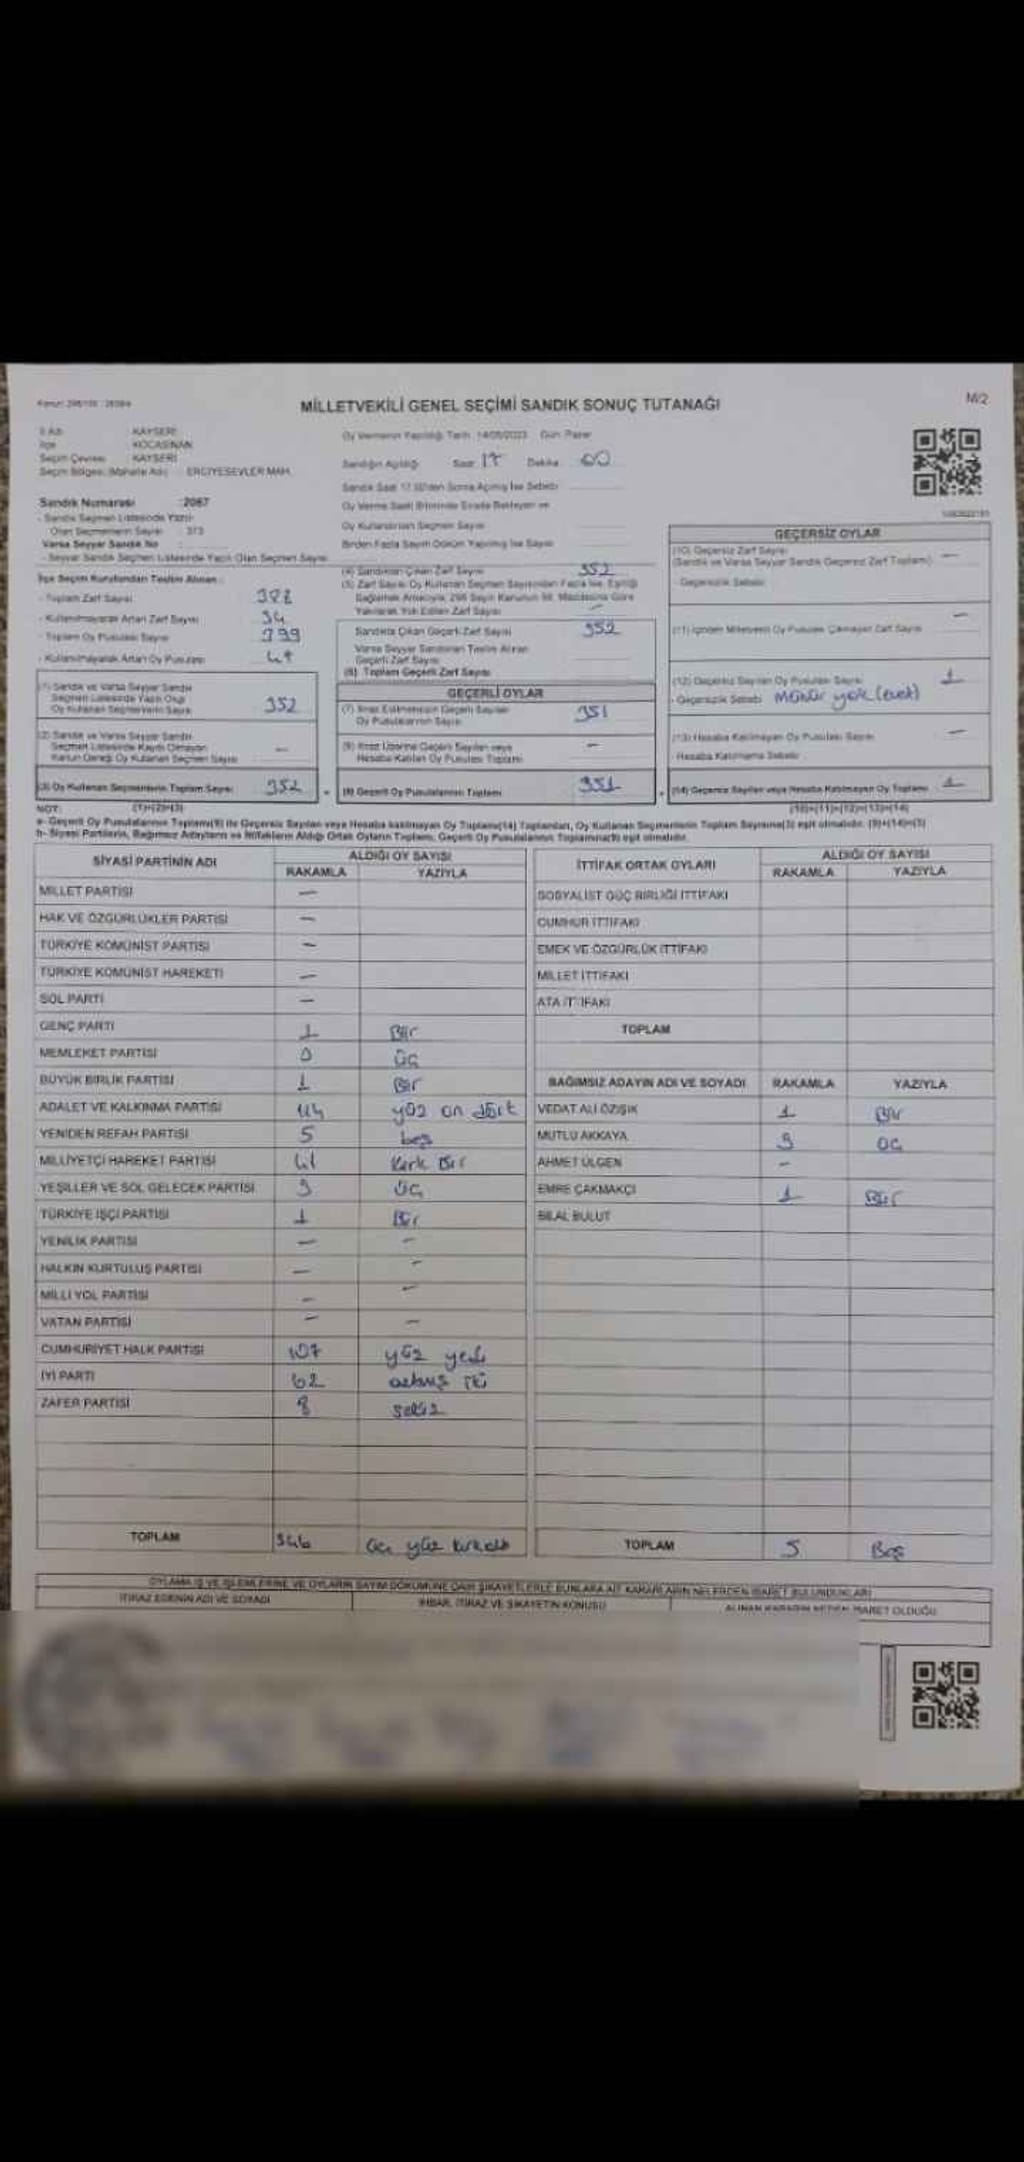 MİLLETVEKİLİ GENEL SEÇİMİ SANDIK SONUÇ TUTANAĞI
M/2
İl Adı KAYSERİ
İlçe KOCASİNAN
Seçim Çevresi KAYSERİ
Seçim Bölgesi (Mahalle Adı) ERCİYESEVLER MAH.
Oy Vermenin Yapıldığı Tarih 14/05/2023 Gün Pazar
Sandığın Açıldığı Saat 17 Dakika 00
Sandık Saat 17.00'den Sonra Açılmış İse Sebebi
Oy Verme Saati Bitiminde Sırada Bekleyen ve
Oy Kullandırılan Seçmen Sayısı
Birden Fazla Sayım Döküm Yapılmış İse Sayısı
Sandık Numarası : 2067
- Sandık Seçmen Listesinde Yazılı
Olan Seçmenlerin Sayısı : 373
Varsa Seyyar Sandık No
- Seyyar Sandık Seçmen Listesinde Yazılı Olan Seçmen Sayısı
İlçe Seçim Kurulundan Teslim Alınan :
- Toplam Zarf Sayısı
- Kullanılmayarak Artan Zarf Sayısı
- Toplam Oy Pusulası Sayısı 399
- Kullanılmayarak Artan Oy Pusulası 47
(1) Sandık ve Varsa Seyyar Sandık
Seçmen Listesinde Yazılı Olup
Oy Kullanan Seçmenlerin Sayısı 352
(2) Sandık ve Varsa Seyyar Sandık
Seçmen Listesinde Kayıtlı Olmayan
Kanun Gereği Oy Kullanan Seçmen Sayısı —
(3) Oy Kullanan Seçmenlerin Toplam Sayısı 352
(1)+(2)=(3)
(4) Sandıktan Çıkan Zarf Sayısı 352
(5) Zarf Sayısı Oy Kullanan Seçmen Sayısından Fazla İse, Eşitliği
Sağlamak Amacıyla, 298 Sayılı Kanunun 98. Maddesine Göre
Yakılarak Yok Edilen Zarf Sayısı —
Sandıkta Çıkan Geçerli Zarf Sayısı 352
Varsa Seyyar Sandıktan Teslim Alınan
Geçerli Zarf Sayısı
(6) Toplam Geçerli Zarf Sayısı
GEÇERLİ OYLAR
(7) İtiraz Edilmeksizin Geçerli Sayılan
Oy Pusulalarının Sayısı 351
(8) İtiraz Üzerine Geçerli Sayılan veya
Hesaba Katılan Oy Pusulası Toplamı —
(9) Geçerli Oy Pusulalarının Toplamı 351
GEÇERSİZ OYLAR
(10) Geçersiz Zarf Sayısı
(Sandık ve Varsa Seyyar Sandık Geçersiz Zarf Toplamı) —
- Geçersizlik Sebebi
(11) İçinden Milletvekili Oy Pusulası Çıkmayan Zarf Sayısı —
(12) Geçersiz Sayılan Oy Pusulası Sayısı 1
- Geçersizlik Sebebi Mühür yok (evet)
(13) Hesaba Katılmayan Oy Pusulası Sayısı —
- Hesaba Katılmama Sebebi
(14) Geçersiz Sayılan veya Hesaba Katılmayan Oy Toplamı 1
(10)+(11)+(12)+(13)=(14)
NOT:
a- Geçerli Oy Pusulalarının Toplamı(9) ile Geçersiz Sayılan veya Hesaba katılmayan Oy Toplamı(14) Toplamları, Oy Kullanan Seçmenlerin Toplam Sayısına(3) eşit olmalıdır. (9)+(14)=(3)
b- Siyasi Partilerin, Bağımsız Adayların ve İttifakların Aldığı Ortak Oyların Toplamı, Geçerli Oy Pusulalarının Toplamına(9) eşit olmalıdır.
SİYASİ PARTİNİN ADI ALDIĞI OY SAYISI
RAKAMLA YAZIYLA
MİLLET PARTİSİ —
HAK VE ÖZGÜRLÜKLER PARTİSİ —
TÜRKİYE KOMÜNİST PARTİSİ —
TÜRKİYE KOMÜNİST HAREKETİ —
SOL PARTİ —
GENÇ PARTİ 1 Bir
MEMLEKET PARTİSİ 3 üç
BÜYÜK BİRLİK PARTİSİ 1 Bir
ADALET VE KALKINMA PARTİSİ 114 yüz on dört
YENİDEN REFAH PARTİSİ 5 beş
MİLLİYETÇİ HAREKET PARTİSİ 41 Kırk Bir
YEŞİLLER VE SOL GELECEK PARTİSİ 3 üç
TÜRKİYE İŞÇİ PARTİSİ 1 Bir
YENİLİK PARTİSİ — —
HALKIN KURTULUŞ PARTİSİ — —
MİLLİ YOL PARTİSİ — —
VATAN PARTİSİ — —
CUMHURİYET HALK PARTİSİ 107 yüz yedi
İYİ PARTİ 62 altmış iki
ZAFER PARTİSİ 8 sekiz
TOPLAM 346 üç yüz kırkaltı
İTTİFAK ORTAK OYLARI ALDIĞI OY SAYISI
RAKAMLA YAZIYLA
SOSYALİST GÜÇ BİRLİĞİ İTTİFAKI
CUMHUR İTTİFAKI
EMEK VE ÖZGÜRLÜK İTTİFAKI
MİLLET İTTİFAKI
ATA İTTİFAKI
TOPLAM
BAĞIMSIZ ADAYIN ADI VE SOYADI RAKAMLA YAZIYLA
VEDAT ALİ ÖZIŞIK 1 Bir
MUTLU AKKAYA 3 üç
AHMET ÜLGEN —
EMRE ÇAKMAKÇI 1 Bir
BİLAL BULUT
TOPLAM 5 Beş
OYLAMA İŞ VE İŞLEMLERİNE VE OYLARIN SAYIM DÖKÜMÜNE DAİR ŞİKAYETLERLE BUNLARA AİT KARARLARIN NELERDEN İBARET BULUNDUKLARI
İTİRAZ EDENİN ADI VE SOYADI İHBAR, İTİRAZ VE ŞİKAYETİN KONUSU ALINAN KARARIN NEDEN İBARET OLDUĞU